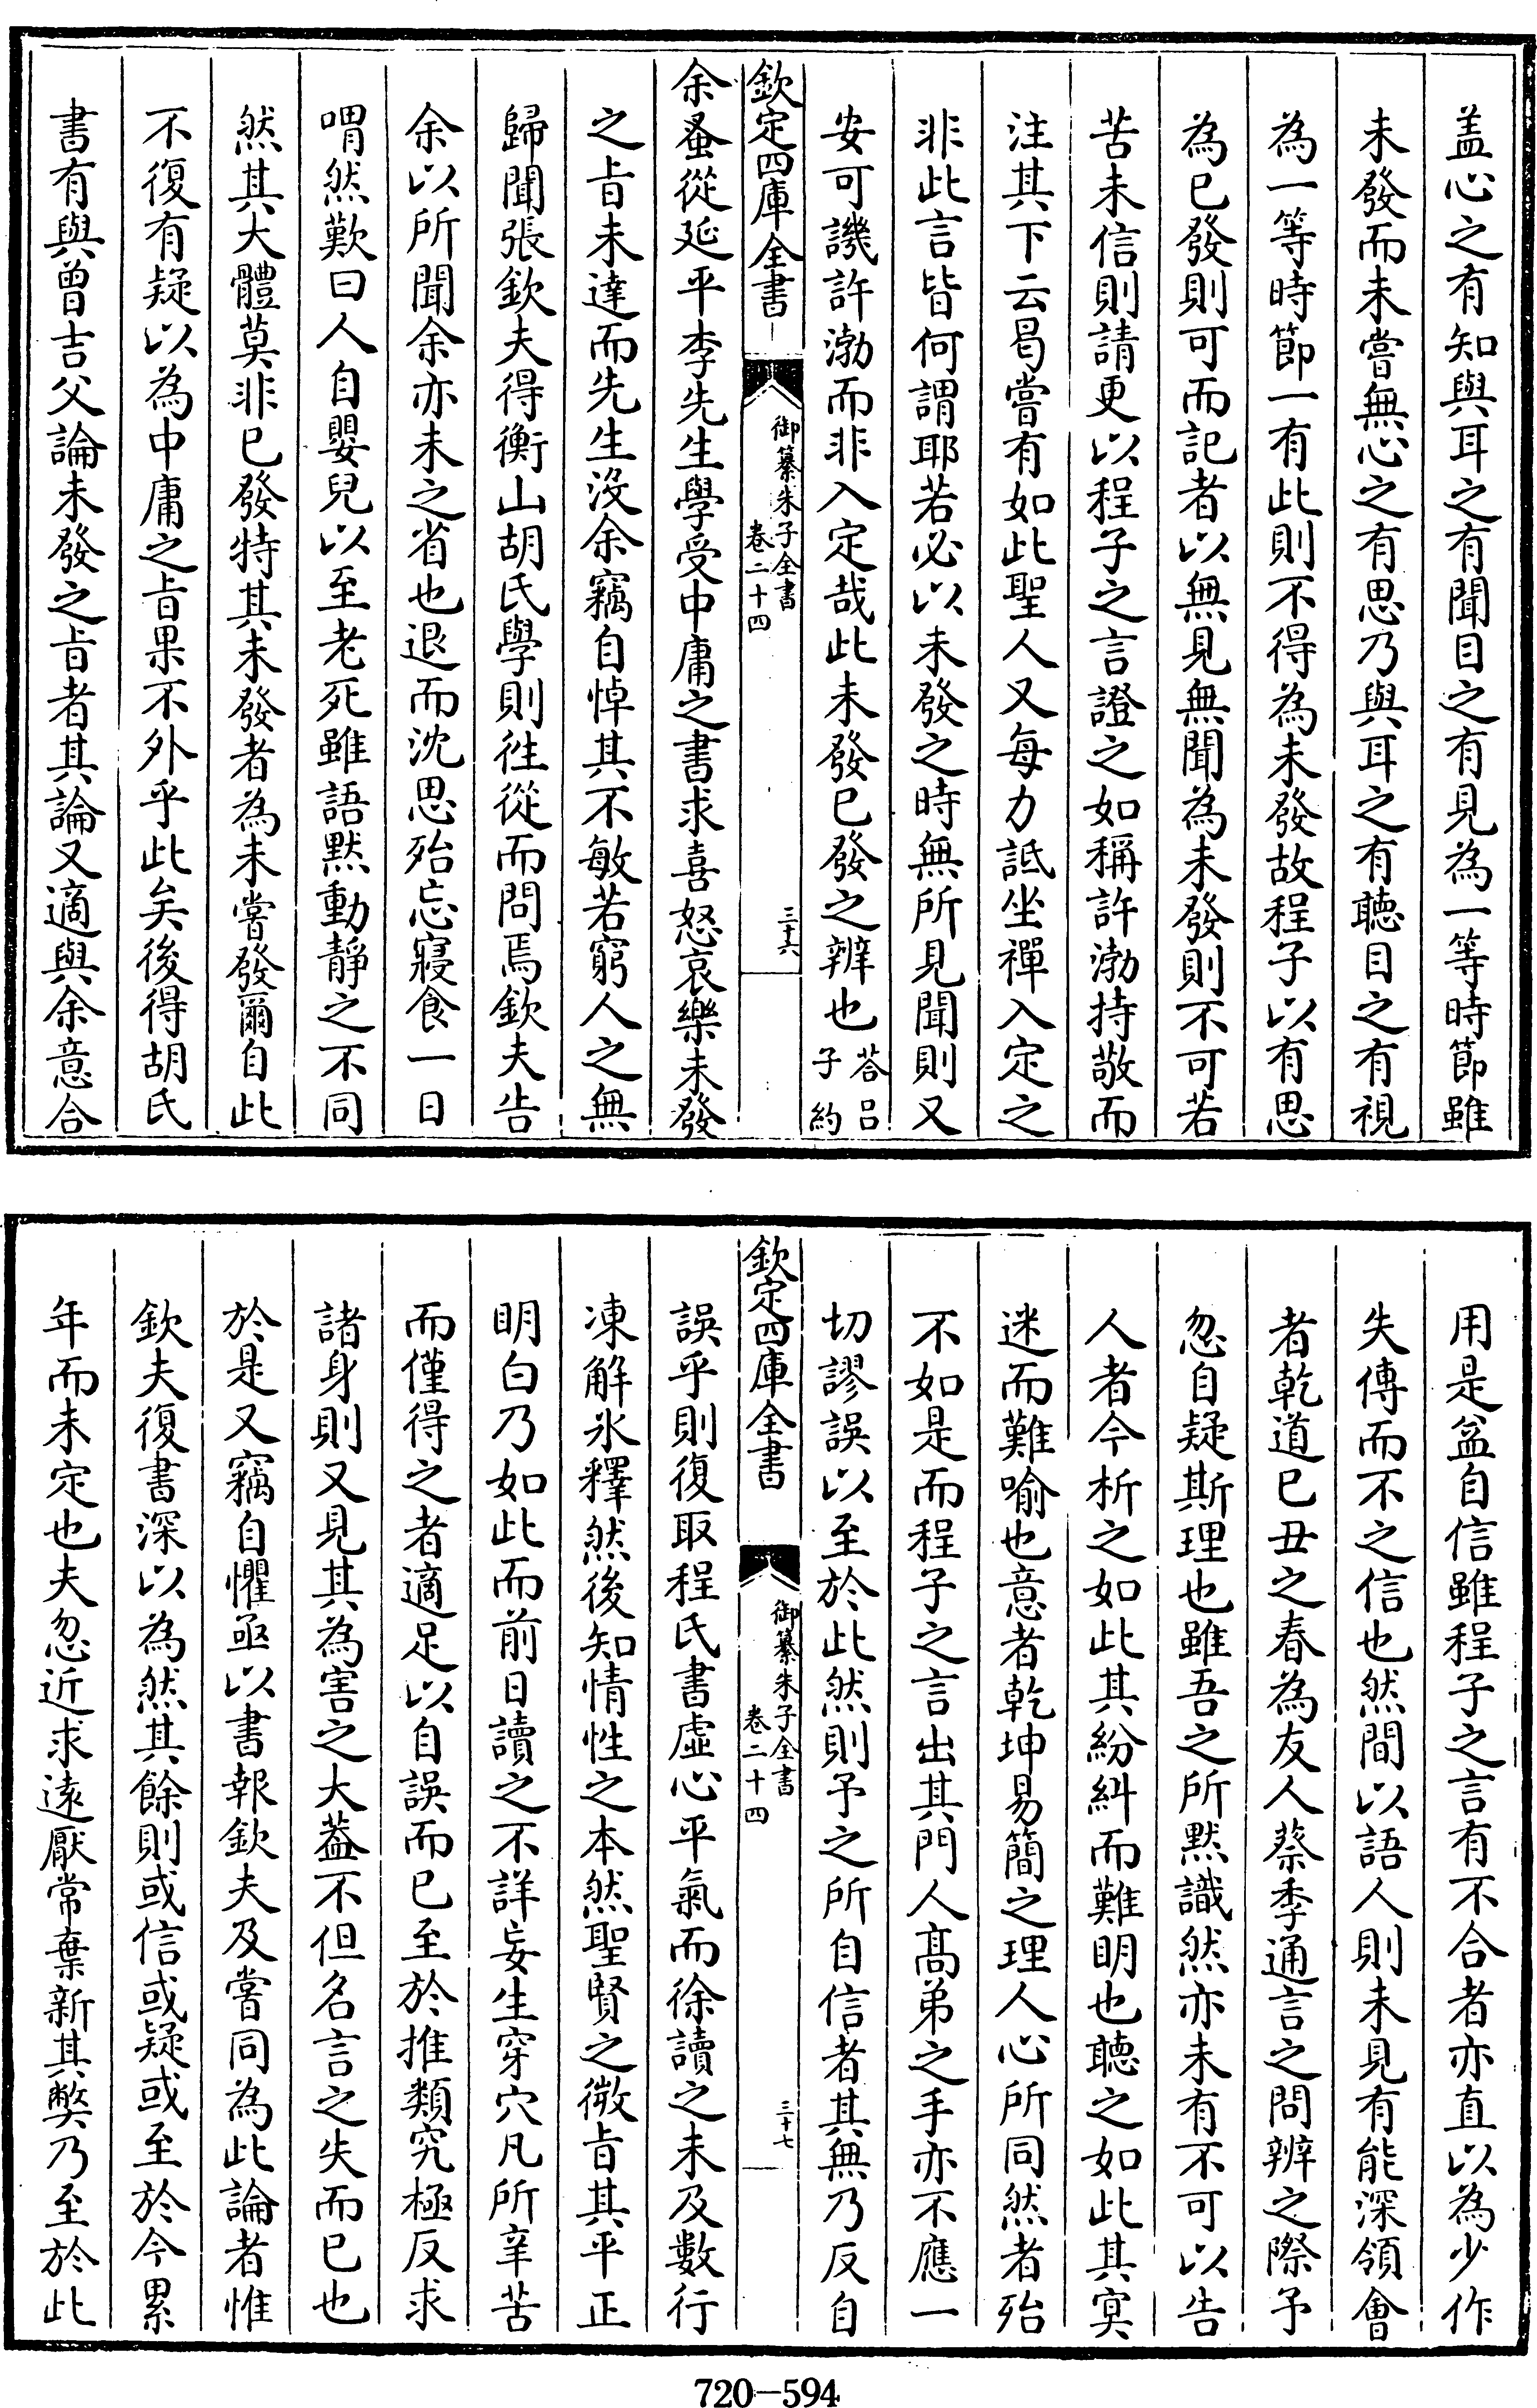 盖心之有知與耳之有聞目之有見為一等時節雖
未發而未嘗無心之有思乃與耳之有聽目之有視
為一等時節一有此則不得為未發故程子以有思
為已發則可而記者以無見無聞為未發則不可若
苦未信則請更以程子之言證之如稱許渤持敬而
注其下云曷嘗有如此聖人又每力詆坐禪入定之
非此言皆何謂耶若必以未發之時無所見聞則又
安可譏許渤而非入定哉此未發已發之辨也答呂子約
欽定四庫全書
御纂朱子全書
卷二十四
三十六
余蚤從延平李先生學受中庸之書求喜怒哀樂未發
之旨未達而先生沒余竊自悼其不敏若窮人之無
歸聞張欽夫得衡山胡氏學則徃從而問焉欽夫告
余以所聞余亦未之省也退而沈思殆忘寢食一日
喟然歎曰人自嬰兒以至老死雖語默動靜之不同
然其大體莫非已發特其未發者為未嘗發爾自此
不復有疑以為中庸之旨果不外乎此矣後得胡氏
書有與曾吉父論未發之旨者其論又適與余意合
用是益自信雖程子之言有不合者亦直以為少作
失傳而不之信也然間以語人則未見有能深領會
者乾道已丑之春為友人蔡季通言之問辨之際予
忽自疑斯理也雖吾之所默識然亦未有不可以告
人者今析之如此其紛糾而難明也聽之如此其冥
迷而難喻也意者乾坤易簡之理人心所同然者殆
不如是而程子之言出其門人髙弟之手亦不應一
切謬誤以至於此然則予之所自信者其無乃反自
欽定四庫全書
御纂朱子全書
卷二十四
三十七
誤乎則復取程氏書虛心平氣而徐讀之未及數行
凍解氷釋然後知情性之本然聖賢之微旨其平正
明白乃如此而前日讀之不詳妄生穿穴凡所辛苦
而僅得之者適足以自誤而已至於推類究極反求
諸身則又見其為害之大葢不但名言之失而已也
於是又竊自懼亟以書報欽夫及嘗同為此論者惟
欽夫復書深以為然其餘則或信或疑或至於今累
年而未定也夫忽近求遠厭常棄新其弊乃至於此
720—594